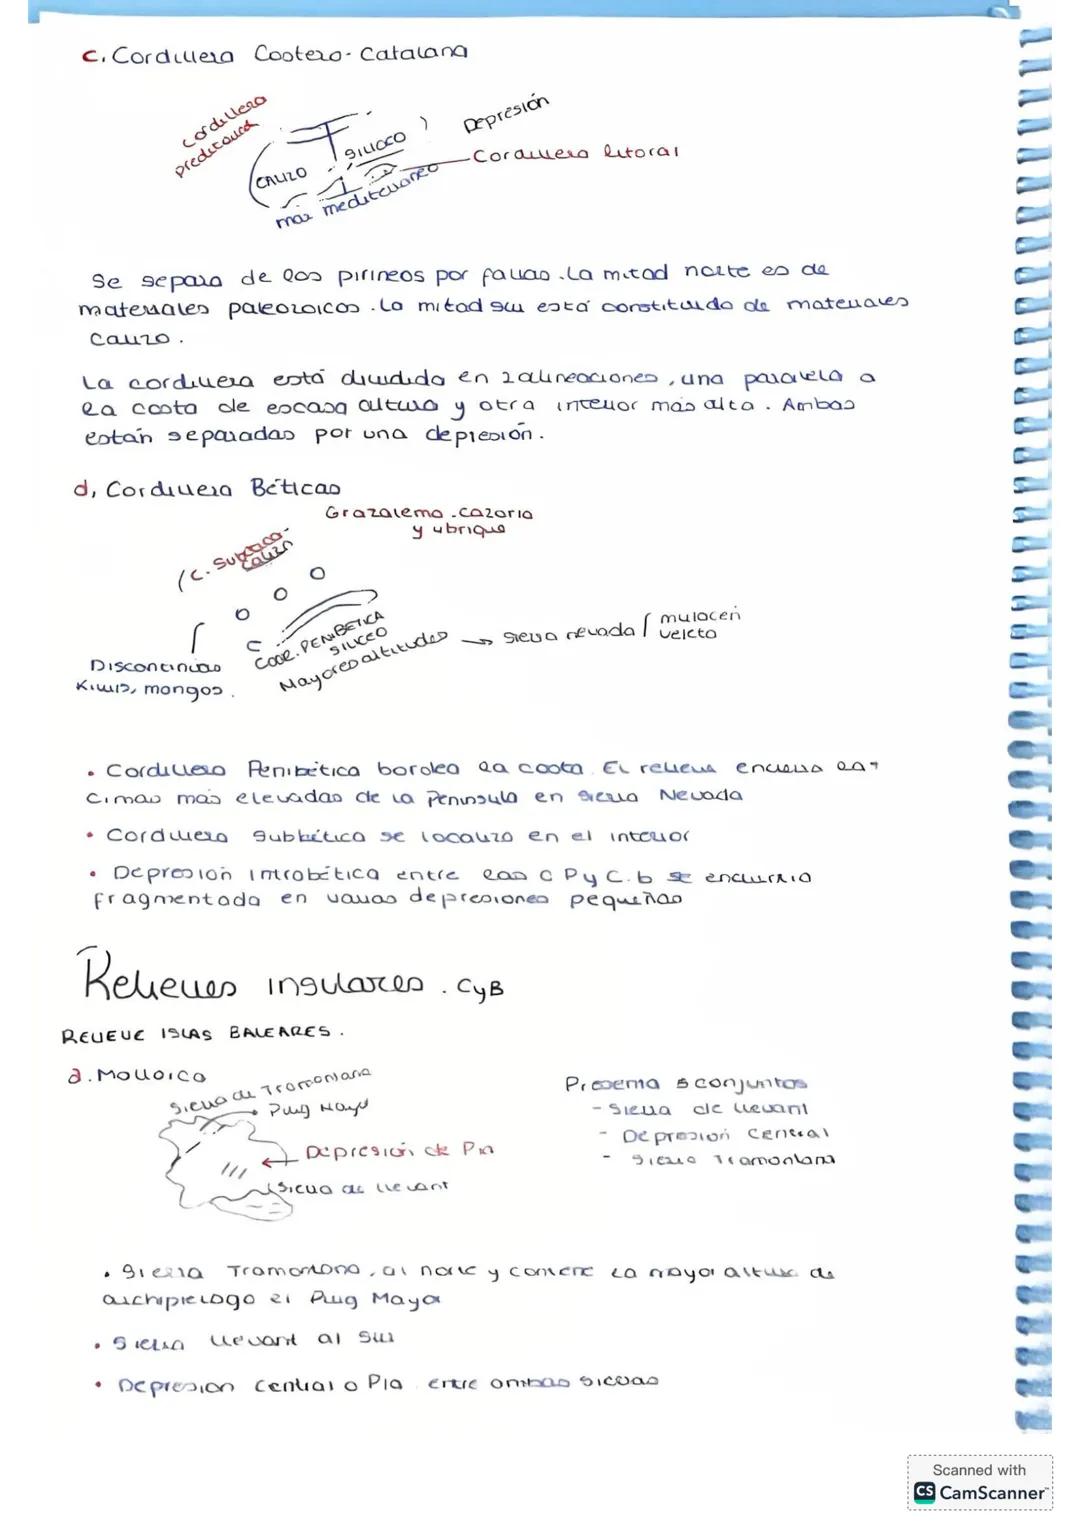 c. Cordillera Costero-Catalana
cordillera
prelitoral
Depresión
SILICEO
CALIZO
Cordillera litoral
mar mediterraneo
Se separa de los pirineos por fallas. La mitad norte es de
materiales paleozoicos. La mitad sur está constituido de materiales
calizo.
La cordillera está dividida en 2 alineaciones, una paralela a
la costa de escasa altura y otra interior más alta. Ambas
están separadas por una depresión.
d, Cordillera Béticas
Grazalema. cazorla
y ubrique
C. Subbética-
Caliza
COOR. PENIBETICA
SILICEO
Mayores altitudes
sierra nevada
mulacen
veleta
Discontinuas
mongos.
• Cordillera Penibética bordea la costa. El relieve encierra las
cimas más elevadas de la Península en Sierra Nevada
• Cordillera Subbética se localiza en el interior
• Depresión Intrabética entre las C P y C. b se encuentra
fragmentada en varias depresiones pequeñas
Relieves insulares. CyB
RELIEVE ISLAS BALEARES.
a. Mallorca
Sierra de Tramontana
Puig Mayor
Depresión de Pla
Sierra de llevant
Presenta 3 conjuntos
- Sierra de llevant
- Depresión Central
- Sierra Tramontana
• Sierra Tramontana, al norte y contiene la mayor altura de
archipielago el Puig Mayor
• Sierra llevant al sur
• Depresion central o Pla entre ambas sierras
Scanned with
CS CamScanner